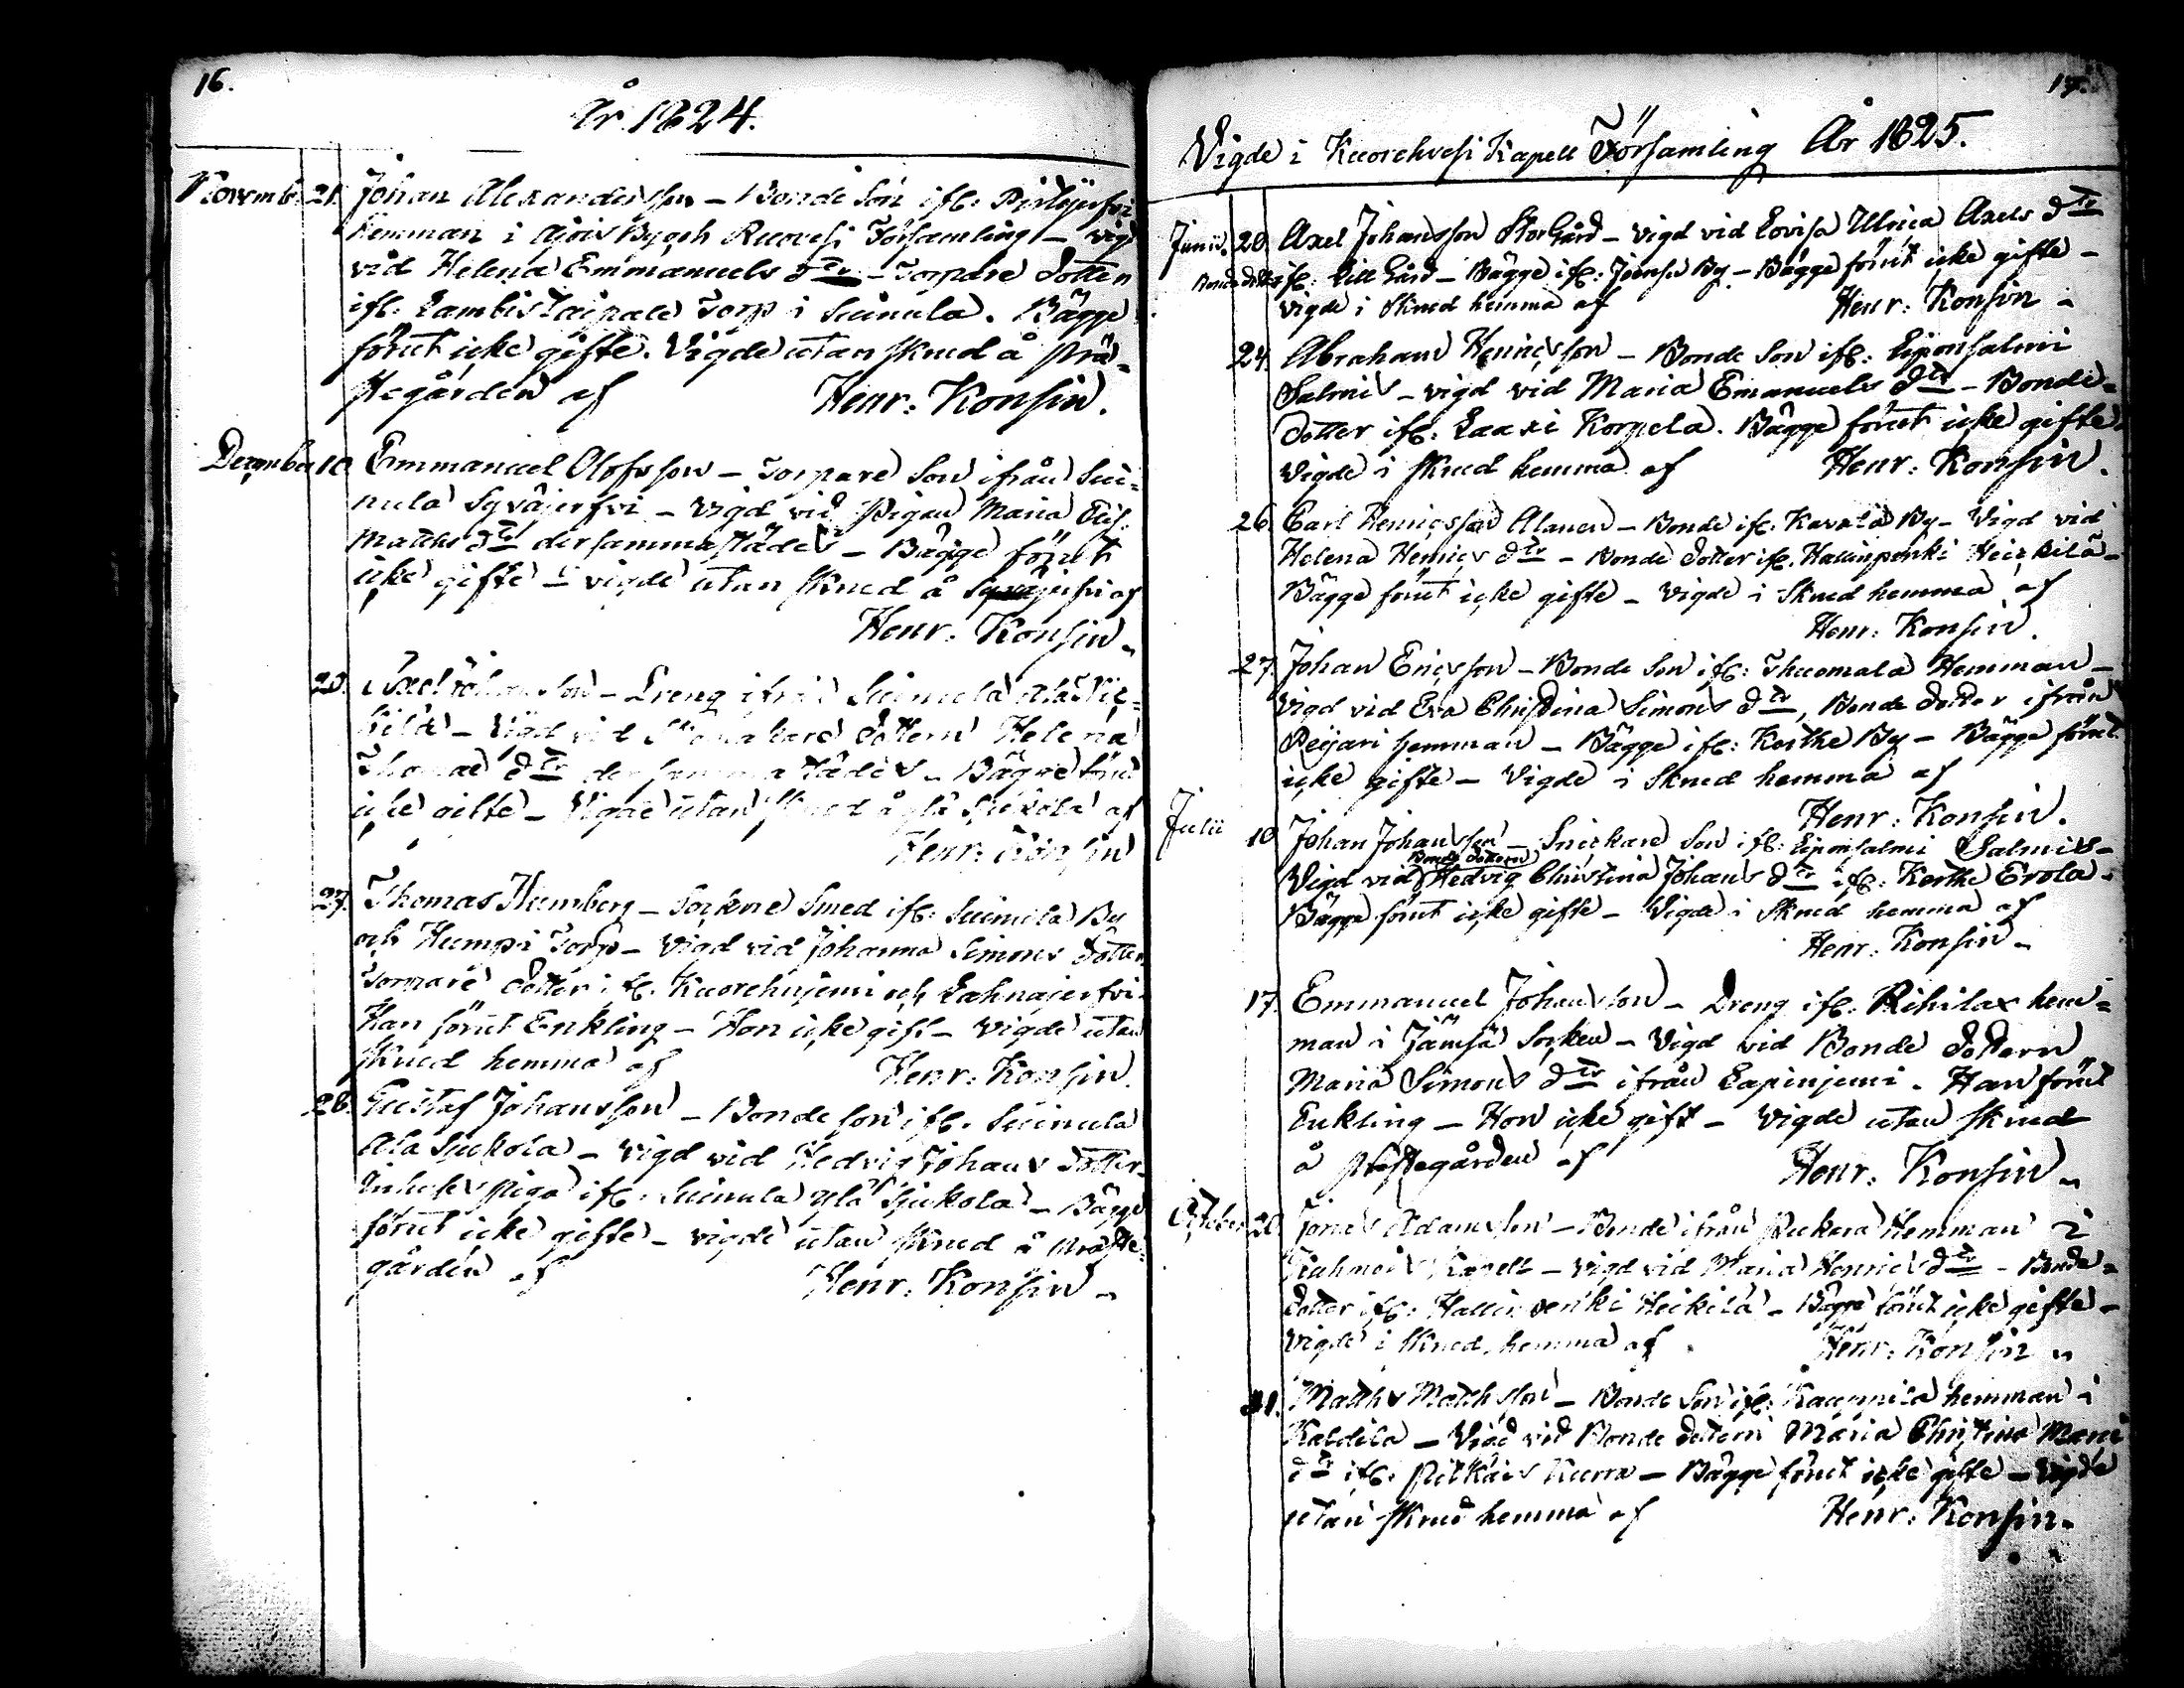 16.
År 1824.
Novemb. 21. Johan Alexandersson – Bonde Son ifr. Pirttijerfvi
hemman i Ajois By och Ruovesi Församling – vigd
vid Helena Emmanuels dtr – Torpare dotter
ifr. Lambis Taipale Torp i Suinula. Bägge
förut icke gifte. Vigde utan skrud å Prä=
stegården af Henr: Konsin.
December 10. Emmanuel Olofsson – Torpare Son ifrån Sui=
nula Syväjerfvi – Vigd vid Pigan Maria
Matths dtr dersammastädes – Bägge förut
icke gifte – vigde utan skrud å Syväjerfvi af
Henr: Konsin.
20. Axel Johansson – Dreng ifrån Suinula
– Vigd vid dottern Helena
Thomae dtr dersammastädes – Bägge förut
icke gifte – Vigde utan skrud å Ylä Sjukola af
Henr: Konsin
27. Thomas Humberg – Sockne Smed ifr. Suinula By
och Humpi Torp – Vigd vid Johanna Simons dotter
Torpare dotter ifr. Kuorehujemi och Lahnajerfvi.
Han förut Enkling – Hon icke gift – Vigde utan
skrud hemma af Henr: Konsin.
28. Gustaf Johansson – Bonde son ifr. Suinula
Ala Sjukola – Vigd vid Hedvig Johans dotter
Inhuses piga ifr. Suinula Ylä Sjukola – Bägge
förut icke gifte – vigde utan skrud å Präste=
gården af Henr: Konsin –
17.
Vigde i Kuorehvesi Kapell Församling År 1825.
Junii. 20. Axel Johansson Storgård – Vigd vid Lovisa Ulrica Axels dtr
Bonde dotter ifr. Lillgård – Bägge ifr. By – Bägge förut icke gifte –
Vigde i Skrud hemma af Henr: Konsin –
24. Abraham Henricsson – Bonde Son ifr. Eiponsalmi
Salmis – vigd vid Maria Emanuels dtr – Bonde=
dotter ifr. Laaxi Korpela. Bägge förut icke gifte.
Vigde i skrud hemma af Henr: Konsin.
26. Carl Henricsson Alanen – Bonde ifr. Kavala By – Vigd vid
Helena Henrics dtr – Bonde dotter ifr. Hallinpenki Heickilä –
Bägge förut icke gifte – Vigde i Skrud hemma af
Henr: Konsin.
27. Johan Ericsson – Bonde Son ifr. Thuomala Hemman –
Vigd vid Eva Christina Simons dtr, Bonde dotter ifrån
Peijari hemman – Bägge ifr. Kerthe By – Bägge förut
icke gifte – Vigde i Skrud hemma af
Henr: Konsin.
Julii 10. Johan Johansson – Snickare Son ifr. Eiponsalmi Salmis –
Bonde dottern
Vigd vid Hedvig Christina Johans dtr ifr. Kerthe Erola –
Bägge förut icke gifte – Vigde i Skrud hemma af
Henr: Konsin –
17. Emmanuel Johansson – Dreng ifr. Rihilax hem=
man i Jämsä Socken – Vigd vid Bonde dottern
Maria Simons dtr ifrån Lapinjemi. Han förut
Enkling – Hon icke gift – Vigde utan skrud
å Prestegården af Henr: Konsin –
October 20. Jonas Adamsson – Bonde ifrån Hemman i
Kuhmois Kapell – Vigd vid Maria Henrics dtr – Bonde=
dotter ifr. Hallinpenki Heikilä – Bägge förut icke gifte –
Vigde i skrud hemma af Henr: Konsin –
31. Matths Matthsson – Bonde Son ifr. Kauppila hemman i
Kaldila – Vigd vid Bonde dottern Maria Christina
dtr ifr. Pitkäis Kurra – Bägge förut icke gifte – Vigde
utan skrud hemma af Henr: Konsin.